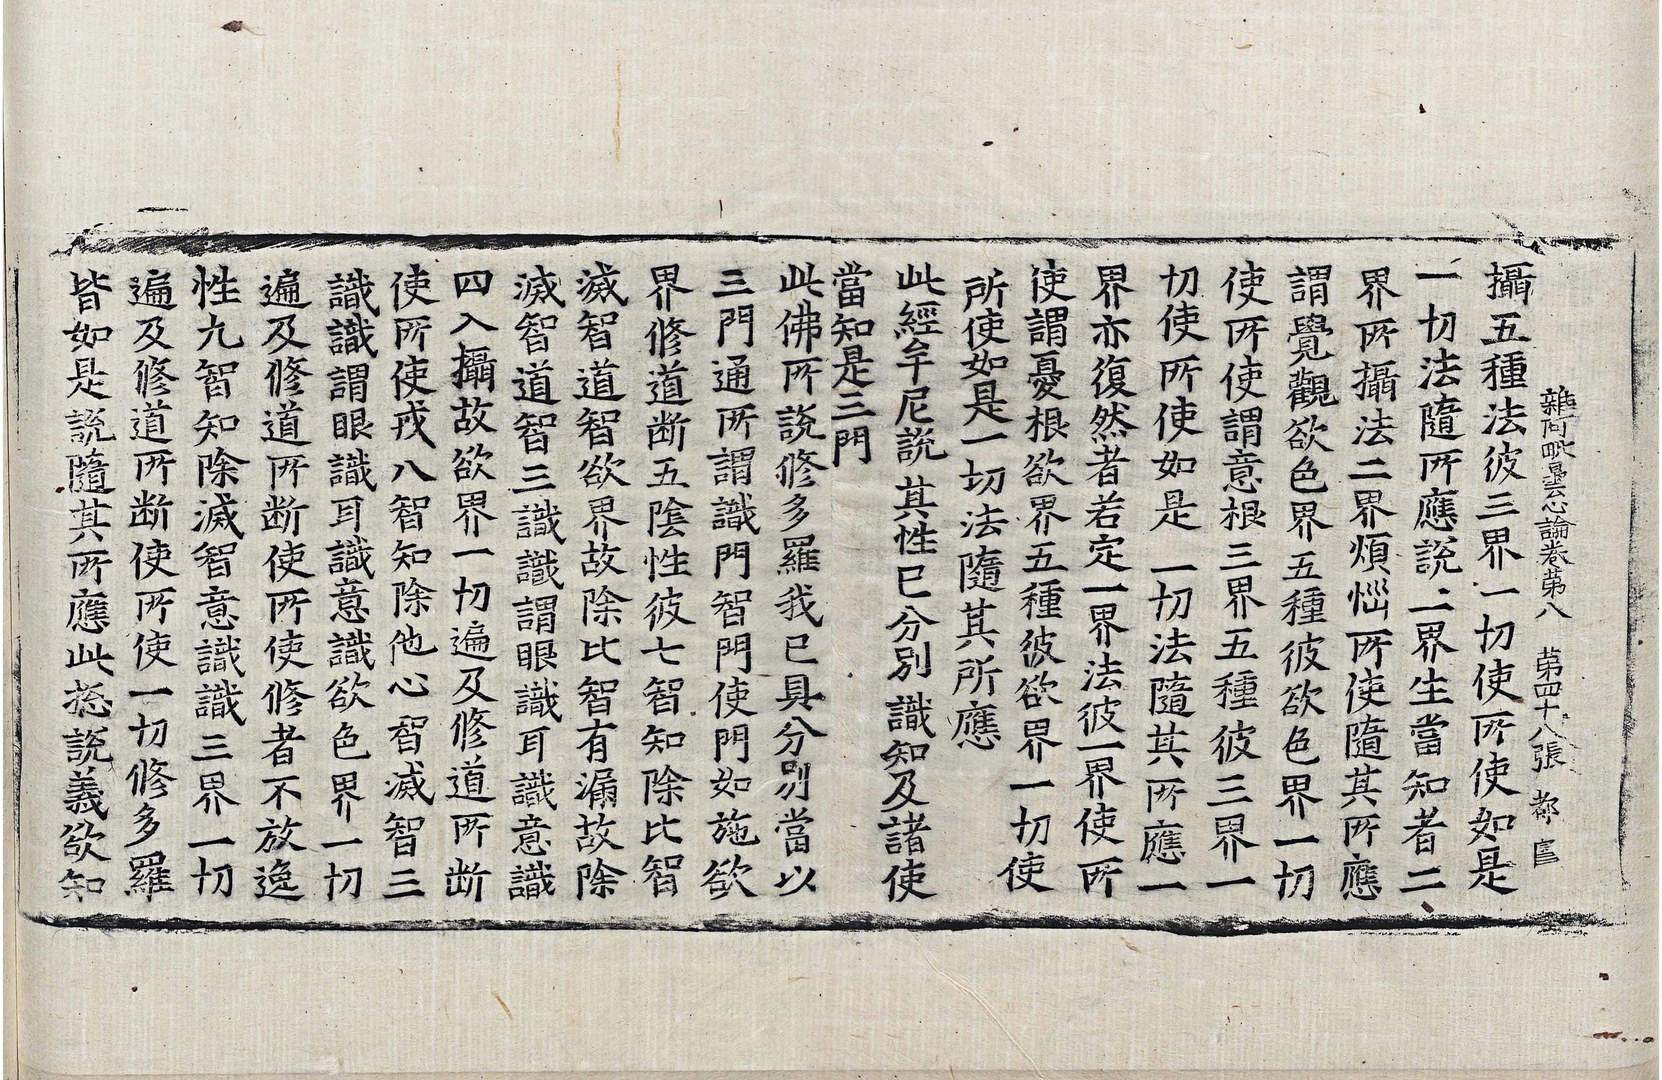 雜阿毗曇心論卷第八　第四十八張　都
攝五種法彼三界一切使所使如是
一切法隨所應說二界生當知者二
界所攝法二界煩惱所使隨其所應
謂覺觀欲色界五種彼欲色界一切
使所使謂意根三界五種彼三界一
切使所使如是一切法隨其所應一
界亦復然者若定一界法彼一界使所
使謂憂根欲界五種彼欲界一切使
所使如是一切法隨其所應
此經牟尼說　其性已分別　識知及諸使
當知是三門
此佛所說修多羅我已具分別當以
三門通所謂識門智門使門如施欲
界修道断五陰性彼七智知除比智
滅智道智欲界故除比智有漏故除
滅智道智三識識謂眼識耳識意識
四入攝故欲界一切遍及修道所断
使所使戎八智知除他心智滅智三
識識謂眼識耳識意識欲色界一切
遍及修道所断使所使修者不放逸
性九智知除滅智意識識三界一切
遍及修道所断使所使一切修多羅
皆如是說隨其所應此揔說義欲知